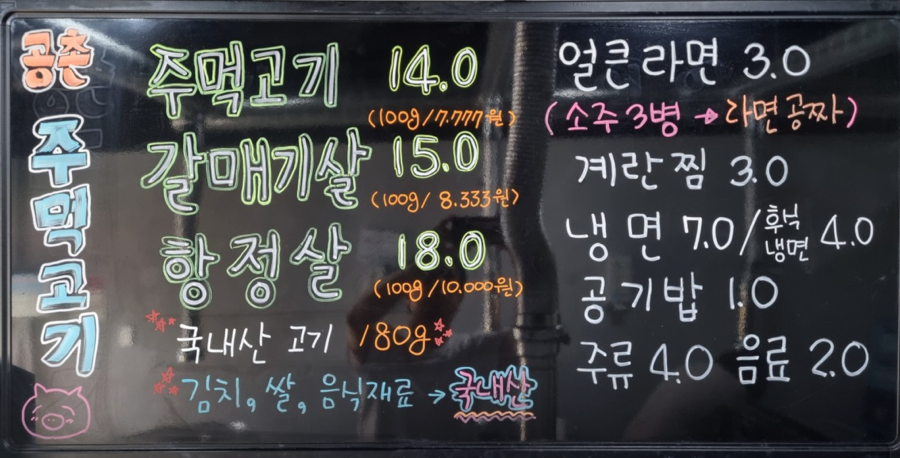 공촌 주먹고기
주먹고기 14.0
(100g/7.777원)
갈매기살 15.0
(100g/8.333원)
항정살 18.0
(100g/10.000원)
국내산 고기 180g
김치, 쌀, 음식재료 → 국내산
얼큰라면 3.0
(소주3병 → 라면공짜)
계란찜 3.0
냉면 7.0/후식냉면 4.0
공기밥 1.0
주류 4.0 음료 2.0